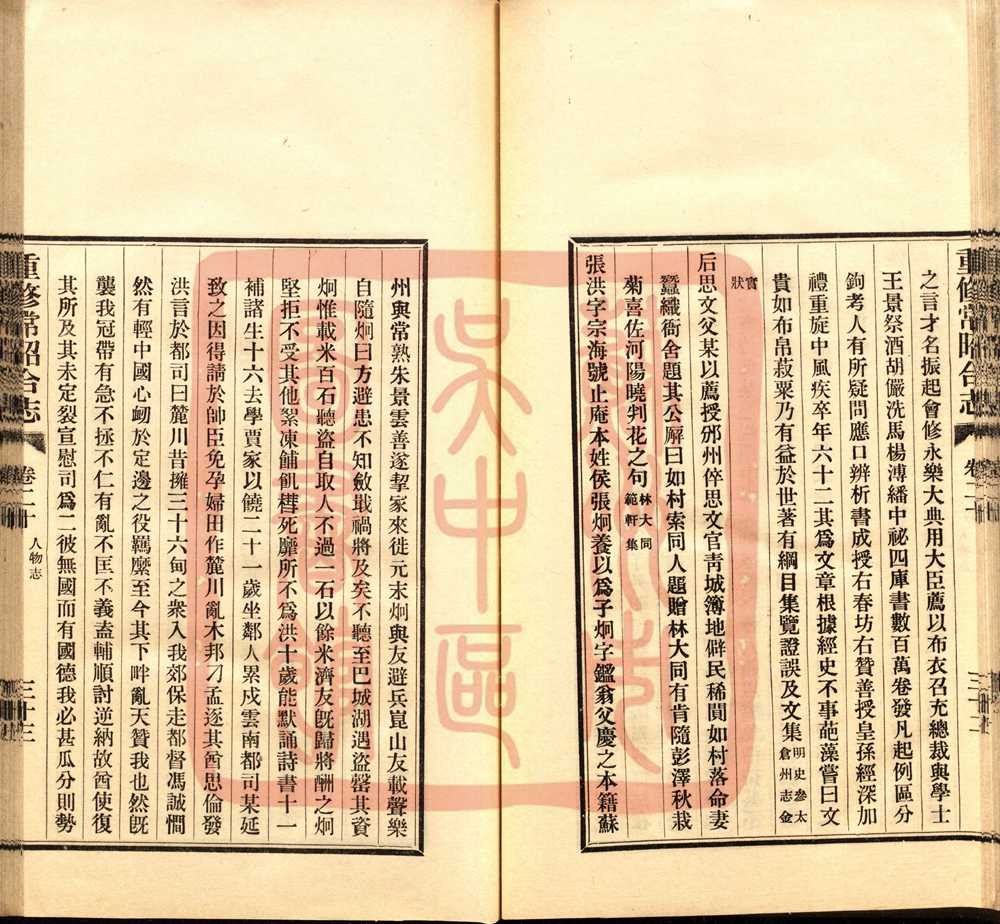 之言才名振起會修永樂大典用大臣薦以布衣召充總裁與學士
王景祭酒胡儼洗馬楊溥繙中祕四庫書數百萬卷發凡起例區分
鉤考人有所疑問應口辨析書成授右春坊右贊善授皇孫經深加
禮重旋中風疾卒年六十二其爲文章根據經史不事葩藻嘗曰文
貴如布帛菽粟乃有益於世著有綱目集覽證誤及文集明史參太倉州志金
實狀
后思文父某以薦授邠州倅思文官靑城簿地僻民稀閴如村落命妻
蠶織衙舍題其公廨曰如村索同人題贈林大同有肯隨彭澤秋栽
菊喜佐河陽曉判花之句林大同範軒集
張洪字宗海號止庵本姓侯張炯養以爲子炯字鑑翁父慶之本籍蘇
重修常昭合志
卷二十
三十二
州與常熟朱景雲善遂挈家來徙元末炯與友避兵崑山友載聲樂
自隨炯曰方避患不知斂戢禍將及矣不聽至巴城湖遇盜罄其資
炯惟載米百石聽盜自取人不過一石以餘米濟友旣歸將酬之炯
堅拒不受其他絮凍餔飢槥死靡所不爲洪十歲能默誦詩書十一
補諸生十六去學賈家以饒二十一歲坐鄰人累戍雲南都司某延
致之因得請於帥臣免孕婦田作麓川亂木邦刁孟逐其酋思倫發
洪言於都司曰麓川昔擁三十六甸之衆入我郊保走都督馮誠憪
然有輕中國心衂於定邊之役羈縻至今其下畔亂天贊我也然旣
襲我冠帶有急不拯不仁有亂不匡不義盍輔順討逆納故酋使復
其所及其未定裂宣慰司爲二彼無國而有國德我必甚瓜分則勢
重修常昭合志
卷二十
人物志
三十三
吳中區